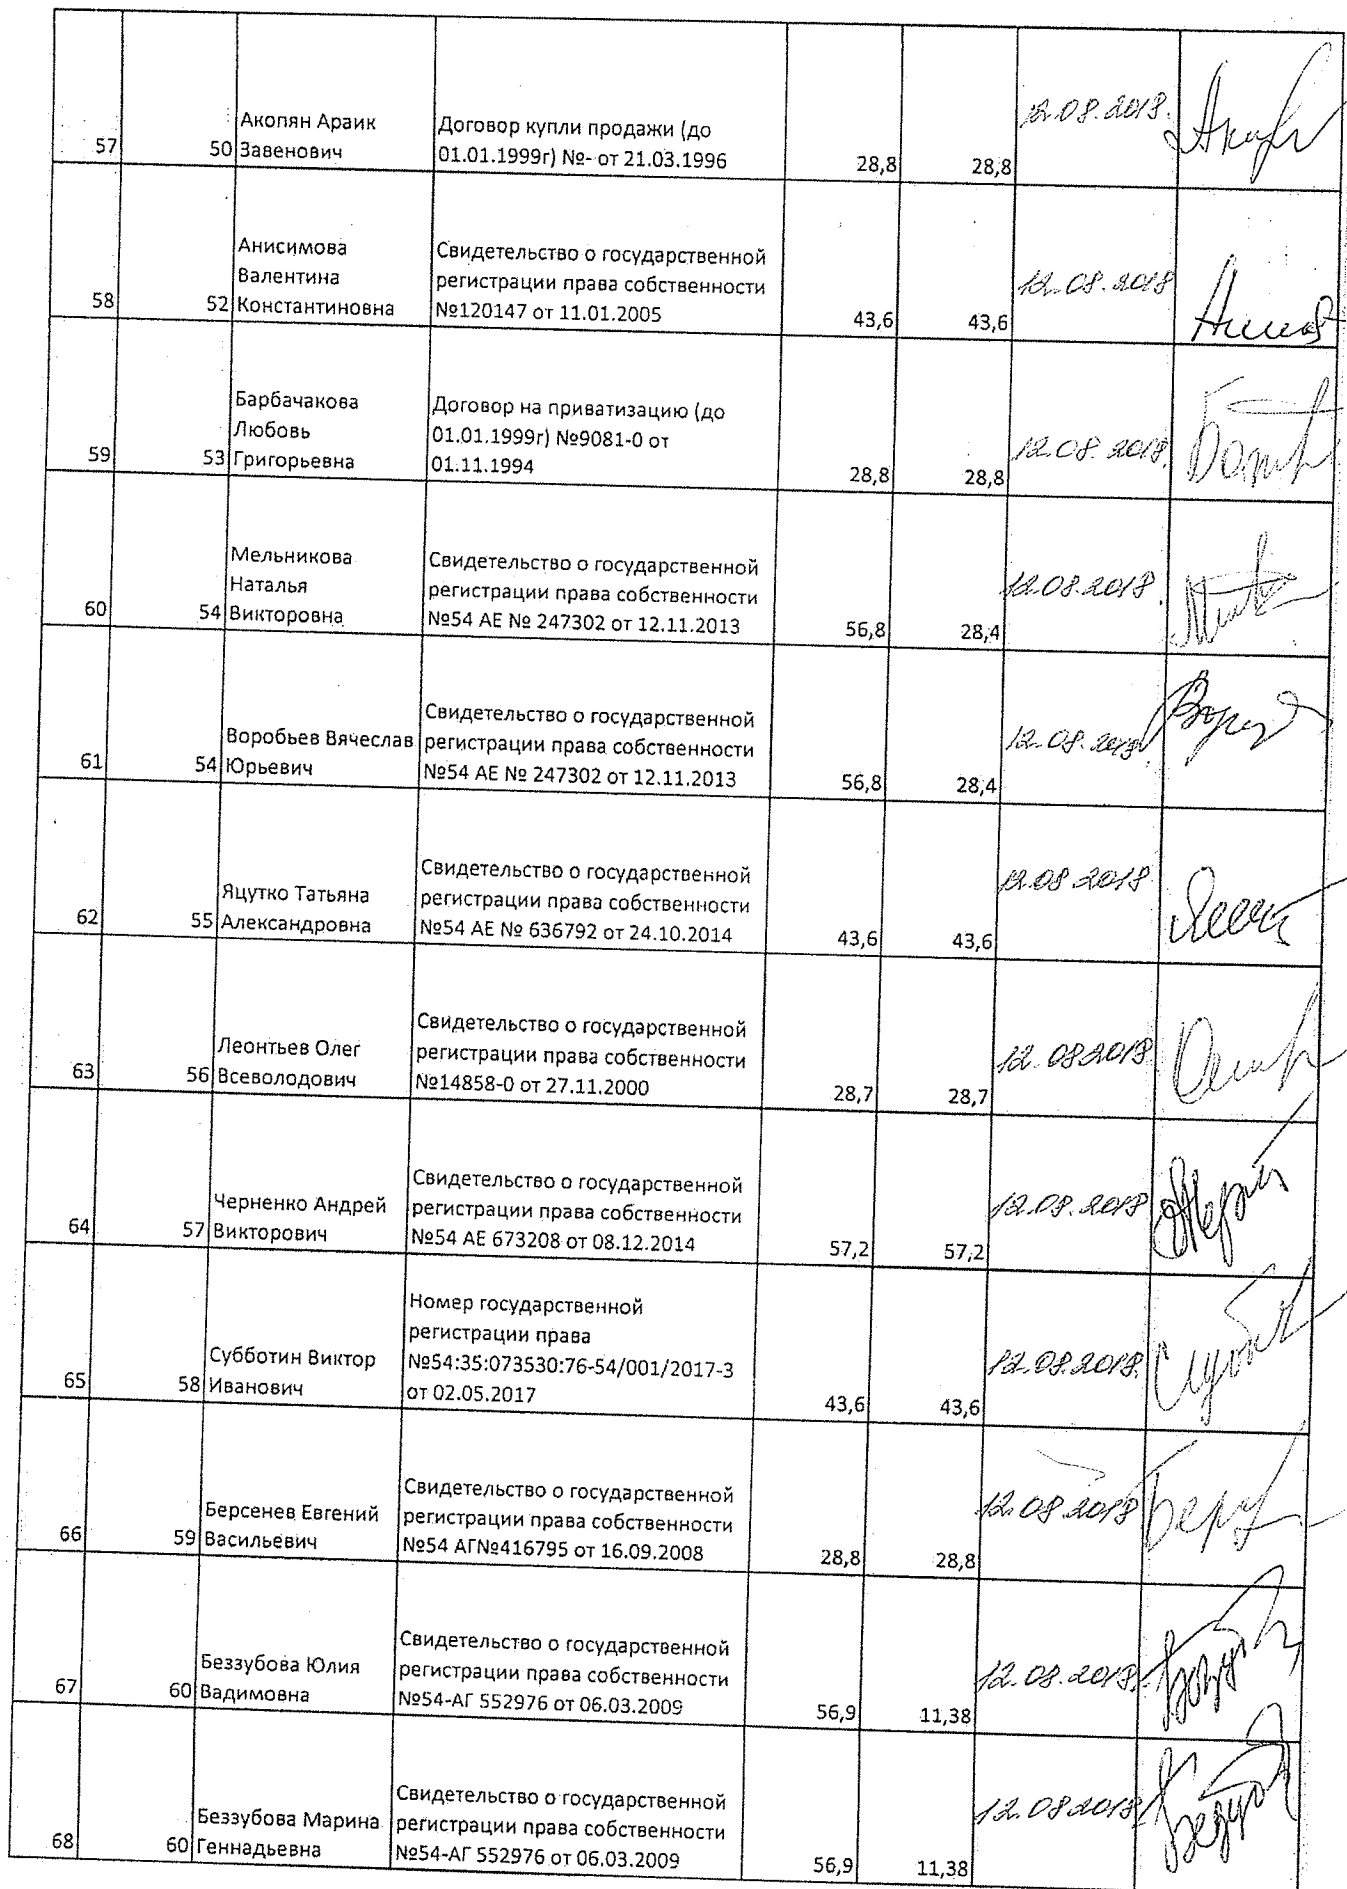 57 50 Акопян Араик Завенович Договор купли продажи (до 01.01.1999г) №- от 21.03.1996 28,8 28,8 12.08.2018.
58 52 Анисимова Валентина Константиновна Свидетельство о государственной регистрации права собственности №120147 от 11.01.2005 43,6 43,6 12.08.2018
59 53 Барбачакова Любовь Григорьевна Договор на приватизацию (до 01.01.1999г) №9081-0 от 01.11.1994 28,8 28,8 12.08.2018.
60 54 Мельникова Наталья Викторовна Свидетельство о государственной регистрации права собственности №54 АЕ № 247302 от 12.11.2013 56,8 28,4 12.08.2018.
61 54 Воробьев Вячеслав Юрьевич Свидетельство о государственной регистрации права собственности №54 АЕ № 247302 от 12.11.2013 56,8 28,4 12.08.2018.
62 55 Яцутко Татьяна Александровна Свидетельство о государственной регистрации права собственности №54 АЕ № 636792 от 24.10.2014 43,6 43,6 12.08 2018
63 56 Леонтьев Олег Всеволодович Свидетельство о государственной регистрации права собственности №14858-0 от 27.11.2000 28,7 28,7 12.08 2018.
64 57 Черненко Андрей Викторович Свидетельство о государственной регистрации права собственности №54 АЕ 673208 от 08.12.2014 57,2 57,2 12.08.2018
65 58 Субботин Виктор Иванович Номер государственной регистрации права №54:35:073530:76-54/001/2017-3 от 02.05.2017 43,6 43,6 12.08.2018.
66 59 Берсенев Евгений Васильевич Свидетельство о государственной регистрации права собственности №54 АГ№416795 от 16.09.2008 28,8 28,8 12.08 2018
67 60 Беззубова Юлия Вадимовна Свидетельство о государственной регистрации права собственности №54-АГ 552976 от 06.03.2009 56,9 11,38 12.08.2018.
68 60 Беззубова Марина Геннадьевна Свидетельство о государственной регистрации права собственности №54-АГ 552976 от 06.03.2009 56,9 11,38 12.08 2018